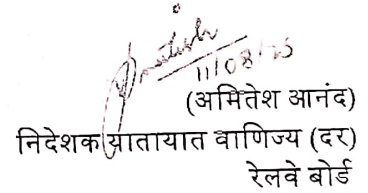 11/08/25
(अमितेश आनंद)
निदेशक यातायात वाणिज्य (दर)
रेलवे बोर्ड